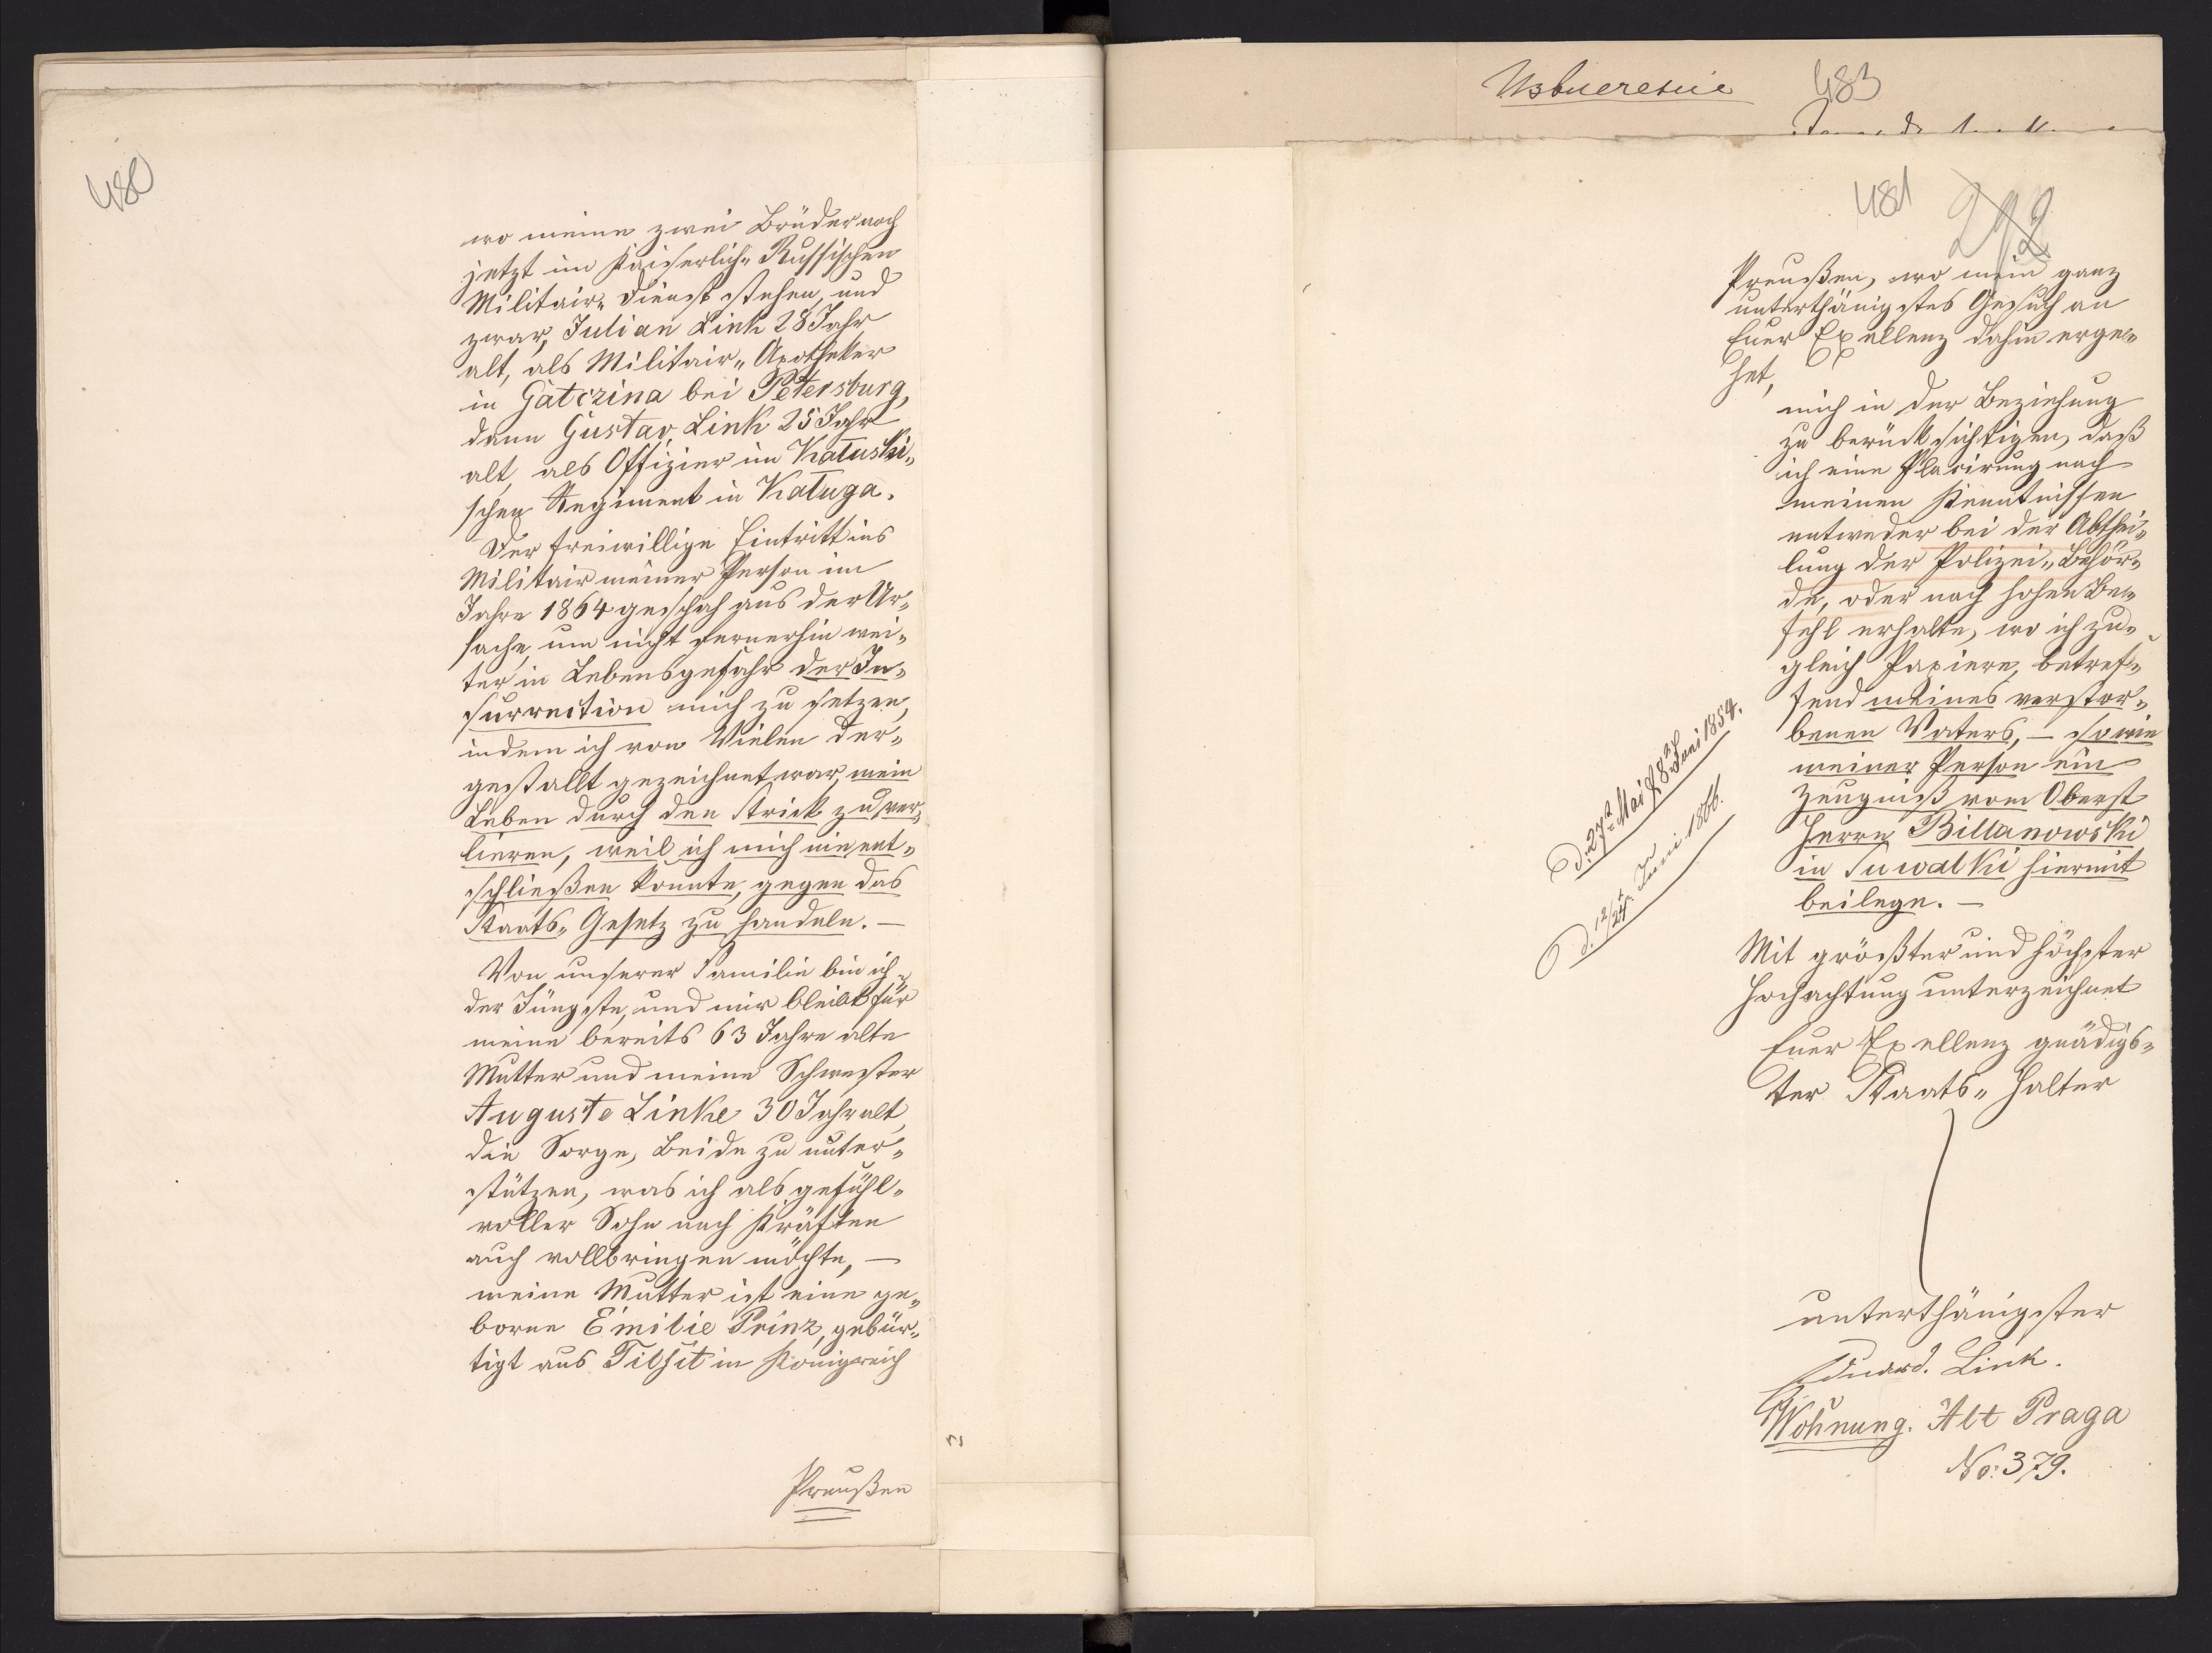 480
wo meine zwei Brüder noch
jetzt im Kaiserlich„ Russischen
Militair„ Dienst stehen, und
zwar, Julian Link 28 Jahr
alt, als Militair„ Apotheker
in Gatczina bei Petersburg,
dann Gustav Link 25 Jahr
alt, als Offizier im Kałuski„
schen Regiment in Kaługa.
Der freiwillige Eintritt ins
Militair meiner Person im
Jahre 1864 geschah aus der Ur„
sache, um nicht fernerhin wei„
ter in Lebensgefahr der In„
surrection mich zu setzen,
indem ich von Vielen der„
gestallt gezeichnet war, mein
Leben durch den Strick zu ver„
lieren, weil ich mich nie ent„
schließen konnte, gegen das
Staats„ Gesetz zu handeln. —
Von unserer Familie bin ich
der Jüngste, und mir bleibt für
meine bereits 63 Jahre alte
Mutter und meine Schwester
Auguste Linke 30 Jahr alt,
die Sorge, Beide zu unter„
stützen, was ich als gefühl„
voller Sohn nach Kräften
auch vollbringen möchte, —
meine Mutter ist eine ge„
borne Emilie Prinz, gebür„
tigt aus Tilsit in Königreich
Preußen
Извлечение 483
481
292
Preußen, wo mein ganz
unterthänigstes Gesuch an
Euer Exellenz dahin erge„
het,
mich in der Beziehung
zu berücksichtigen, daß
ich eine Placirung nach
meinen Kenntnissen
entweder bei der Abthei„
lung der Polizei„ Behör„
de, oder nach hohen Be„
fehl erhalte, wo ich zu„
gleich Papiere, betref„
fend meines verstor„
benen Vaters, — sowie
meiner Person ein
Zeugniß vom Oberst
Herrn Billanowski
in Suwałki hiermit
beilege. —
d. 27t Mai / 8t Juni 1854.
d. 12/24t Juni 1866.
Mit größter und höchster
Hochachtung unterzeichnet
Euer Exellenz gnädigs„
ter Staats„ Halter
unterthänigster
Eduard. Link.
Wohnung. Alt Praga
No: 379.